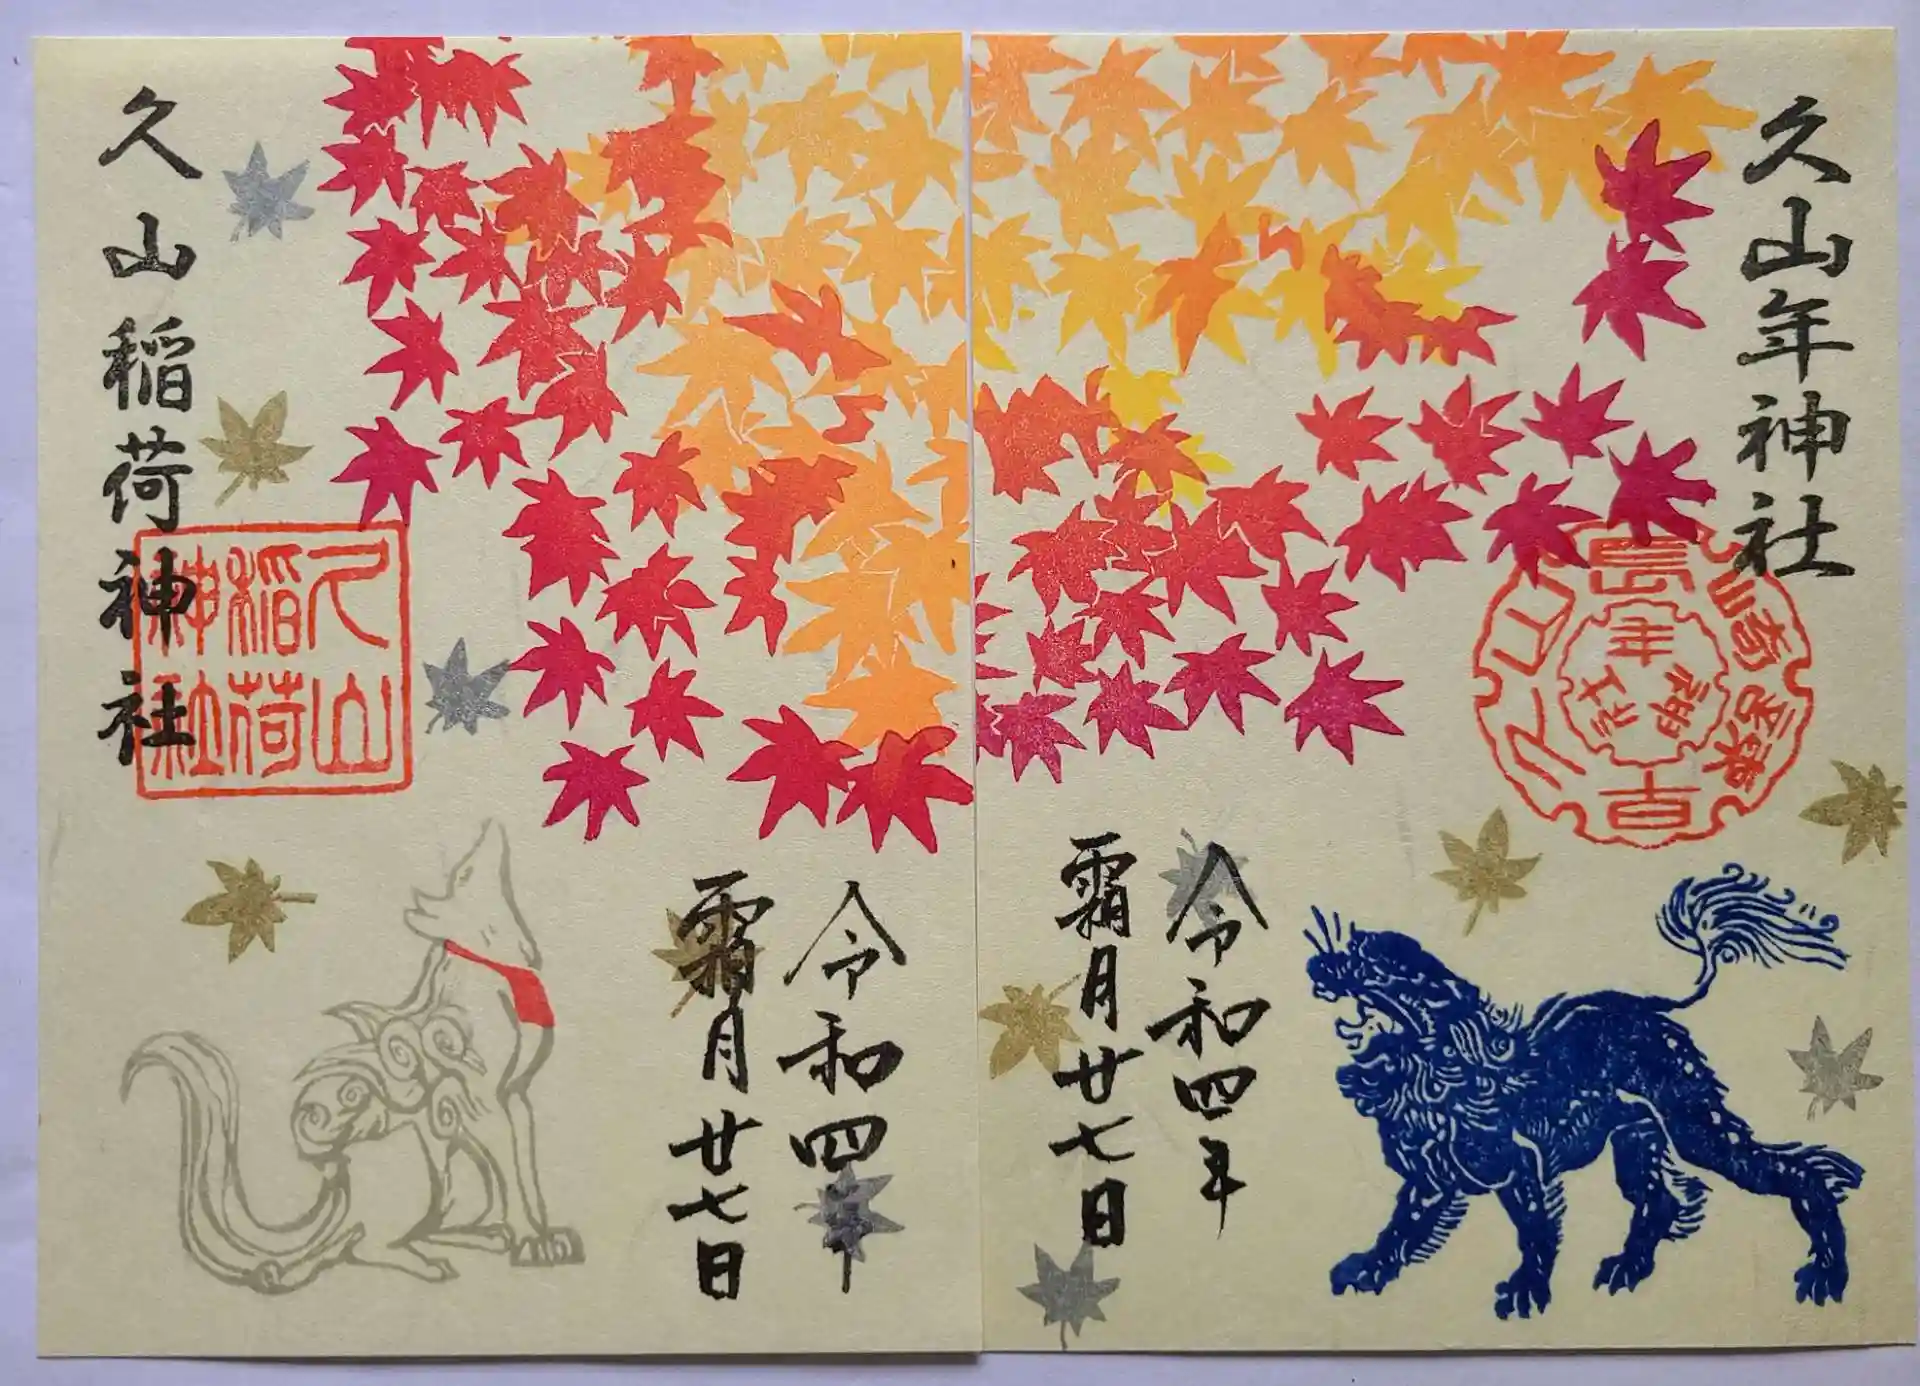 久山年神社
長崎県諫早
久山
年神社
令和四年
霜月廿七日
久山稲荷神社
久山
稲荷
神社
令和四年
霜月廿七日